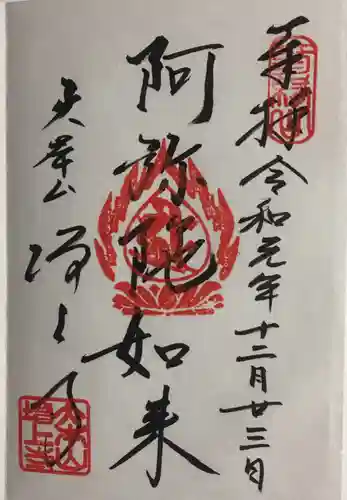 奉拝 令和元年十二月廿三日
阿弥陀如来
大本山 増上寺
大本山
増上寺